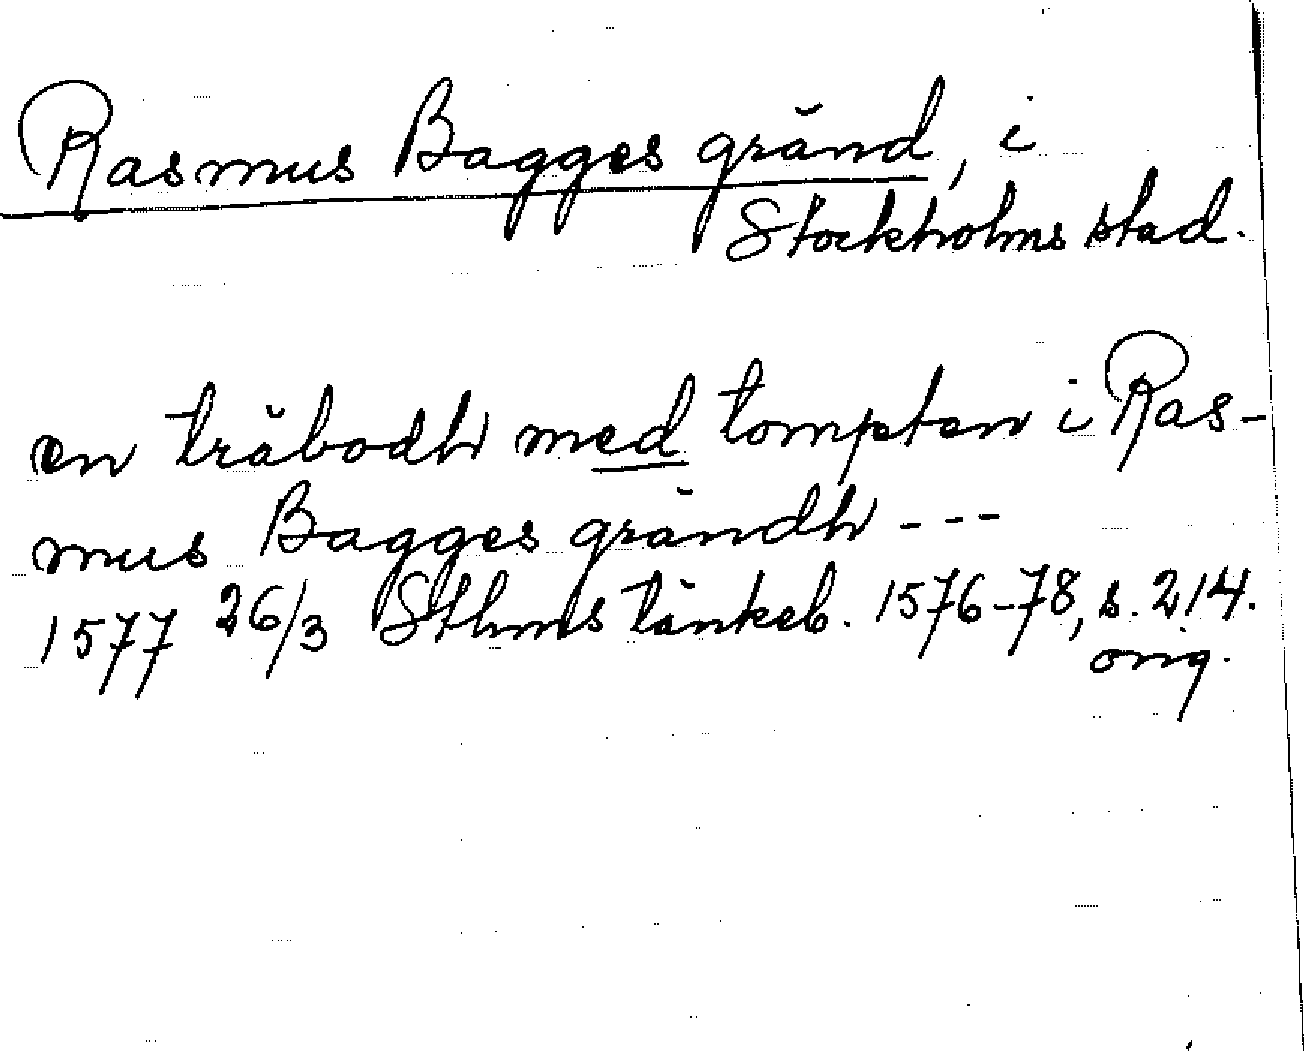 Rasmus Bagges gränd, i
Stockholms stad.
en träbodh med tompten i Ras-
mus Bagges grändh ---
1577 26/3 Sthms tänkeb. 1576-78, s. 214.
orig.